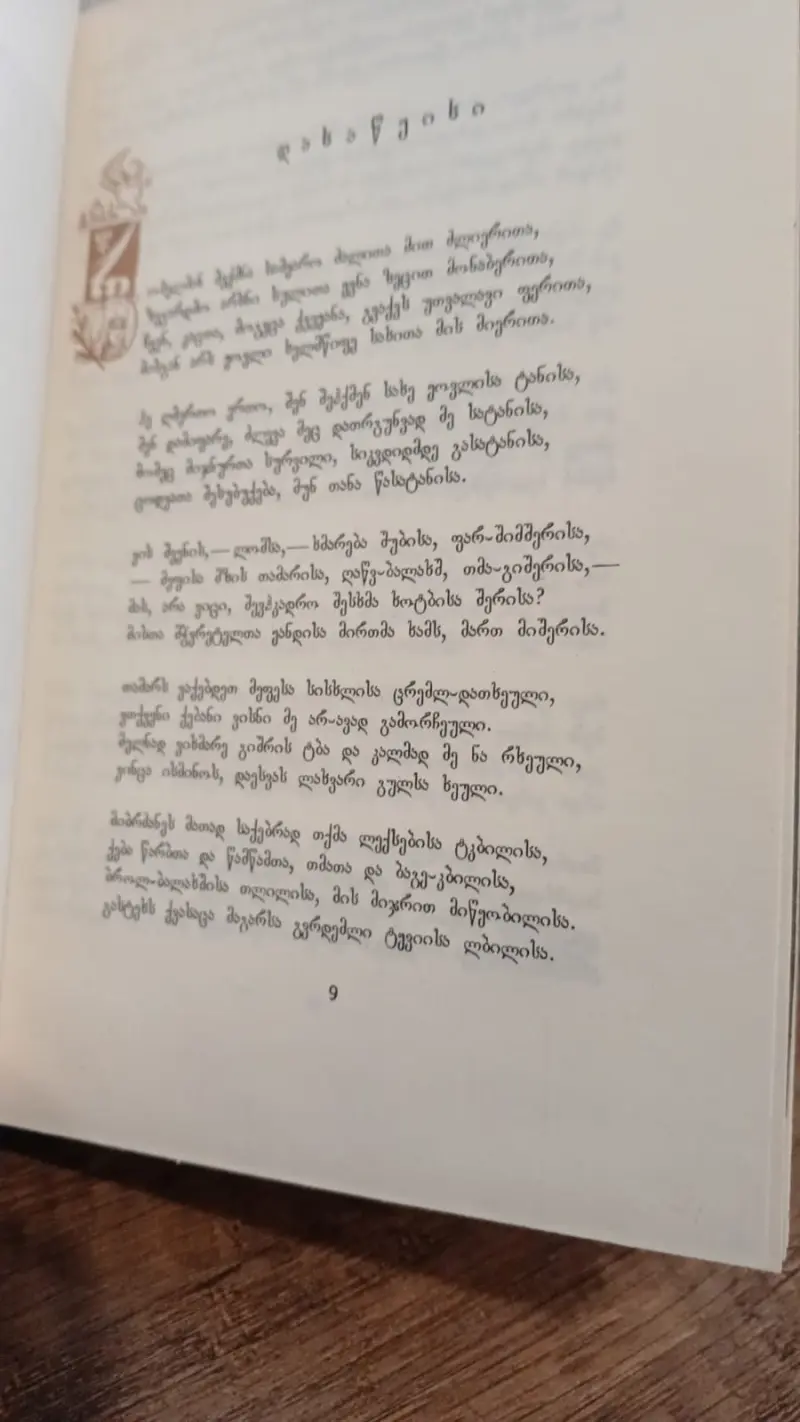 დასაწყისი
რომელმან შექმნა სამყარო ძალითა მით ძლიერითა,
ზეგარდმო არსნი სულითა ყვნა ზეცით მონაბერითა,
ჩვენ, კაცთა, მოგვცა ქვეყანა, გვაქვს უთვალავი ფერითა,
მისგან არს ყოვლი ხელმწიფე სახითა მის მიერითა.
ჰე ღმერთო ერთო, შენ შეჰქმენ სახე ყოვლისა ტანისა,
შენ დამიფარე, ძლევა მეც დათრგუნვად მე სატანისა,
მომეც მიჯნურთა სურვილი, სიკვდიდმდე გასატანისა,
ცოდვათა შესუბუქება, მუნ თანა წასატანისა.
ვის შვენის,—ლომსა,—ხმარება შუბისა, ფარ-შიმშერისა,
— მეფისა მზის თამარისა, ღაწვ-ბალახშ, თმა-გიშერისა,—
მას, არა ვიცი, შევჰკადრო შესხმა ხოტბისა შერისა?
მისთა მჭვრეტელთა ყანდისა მირთმა ხამს, მართ მიშერისა.
თამარს ვაქებდეთ მეფესა სისხლისა ცრემლ-დათხეული,
ვთქვენი ქებანი ვისნი მე არ-ავად გამორჩეული.
მელნად ვიხმარე გიშრის ტბა და კალმად მე ნა რხეული,
ვინცა ისმინოს, დაესვას ლახვარი გულსა ხეული.
მიბრძანეს მათად საქებრად თქმა ლექსებისა ტკბილისა,
ქება წარბთა და წამწამთა, თმათა და ბაგე-კბილისა,
ბროლ-ბალახშისა თლილისა, მის მიჯრით მიწყობილისა.
გასტეხს ქვასაცა მაგარსა გვრდემლი ტყვიისა ლბილისა.
9